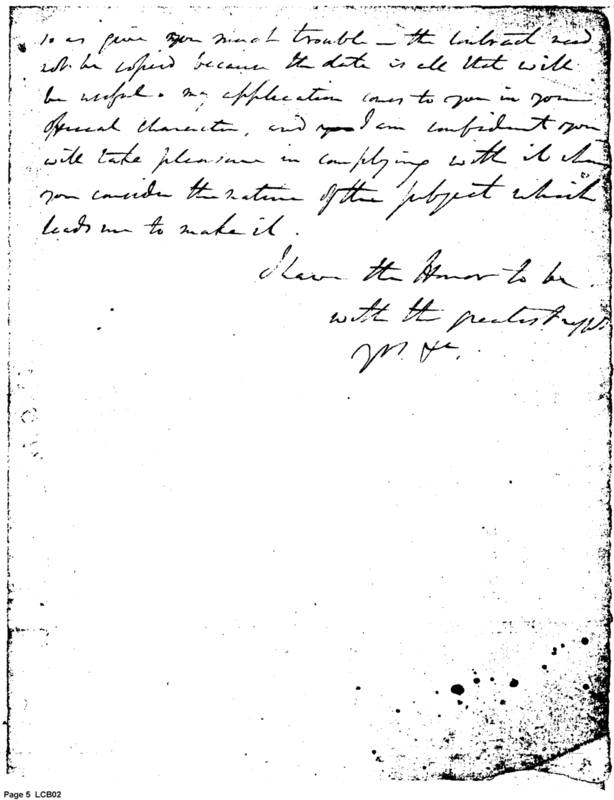 so as give you much trouble – the Contract need
not be copied because the date is all that will
be useful. my application comes to you in your
Official Character, and I am confident you
will take pleasure in complying with it when
you consider the nature of the subject which
leads me to make it.
I have the Honor to be
with the greatest respt
Yr. &c.
Page 5 LCB02